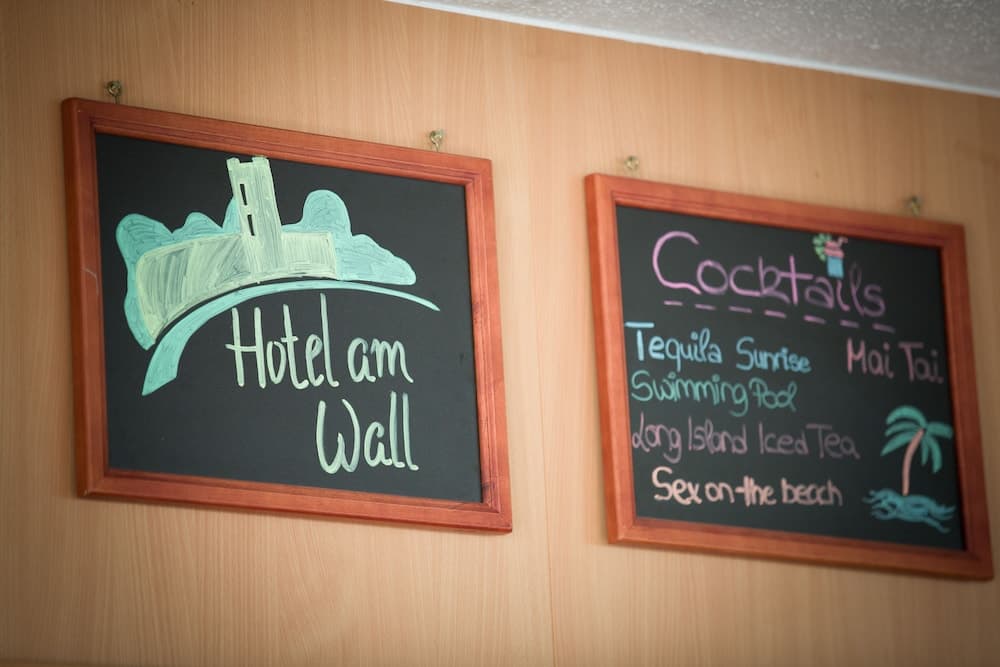 Hotel am
Wall
Cocktails
Tequila Sunrise Mai Tai
Swimming Pool
Long Island Iced Tea
Sex on the beach